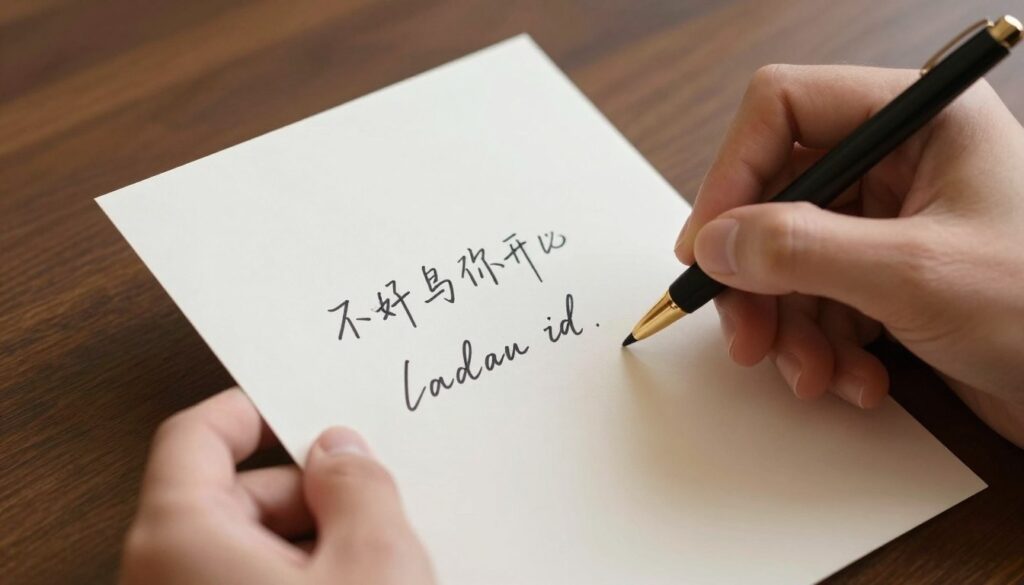 不好鸟你开心
Ladau id.